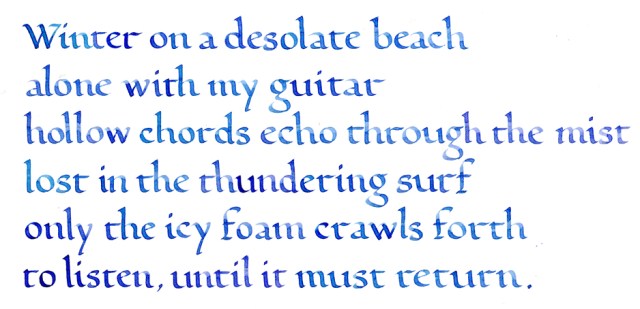 Winter on a desolate beach
alone with my guitar
hollow chords echo through the mist
lost in the thundering surf
only the icy foam crawls forth
to listen, until it must return.